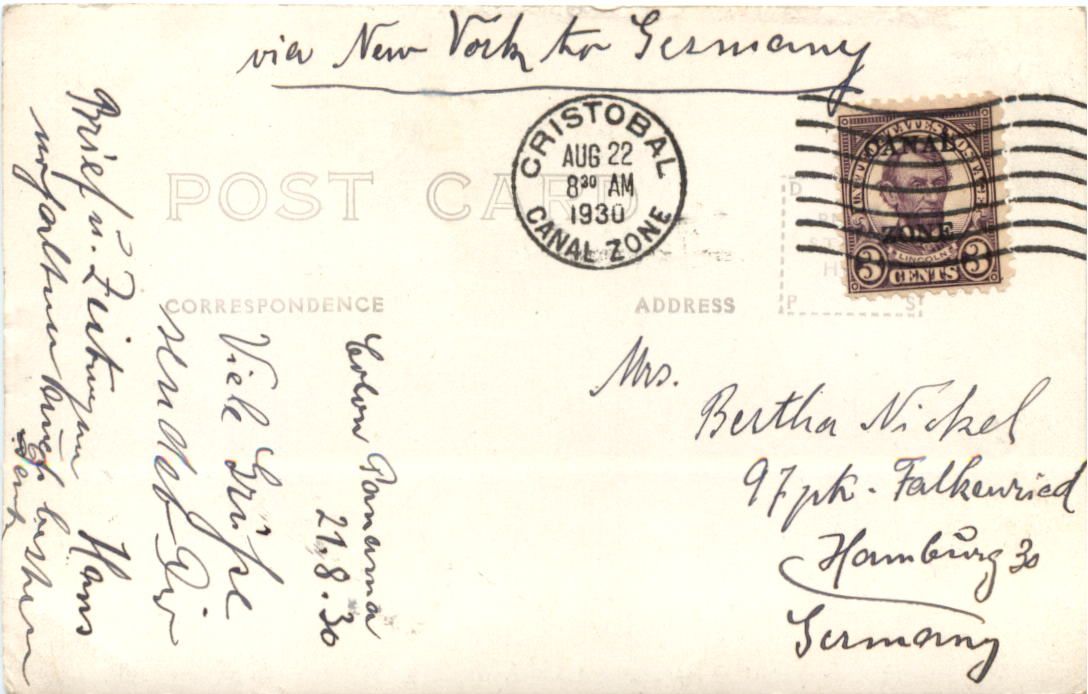 via New York for Germany
CRISTOBAL
AUG 22
8³⁰ AM
1930
CANAL ZONE
UNITED STATES POSTAGE
CANAL
ZONE
LINCOLN
3 CENTS 3
POST CARD
CORRESPONDENCE
ADDRESS
Colon Panama
21.8.30
Viele Grüße
sendet Dir
Hans
Brief u. Zeitungen
erhalten besten
Dank
Mrs.
Bertha Nickel
97 ptr. Falkenried
Hamburg 30
Germany